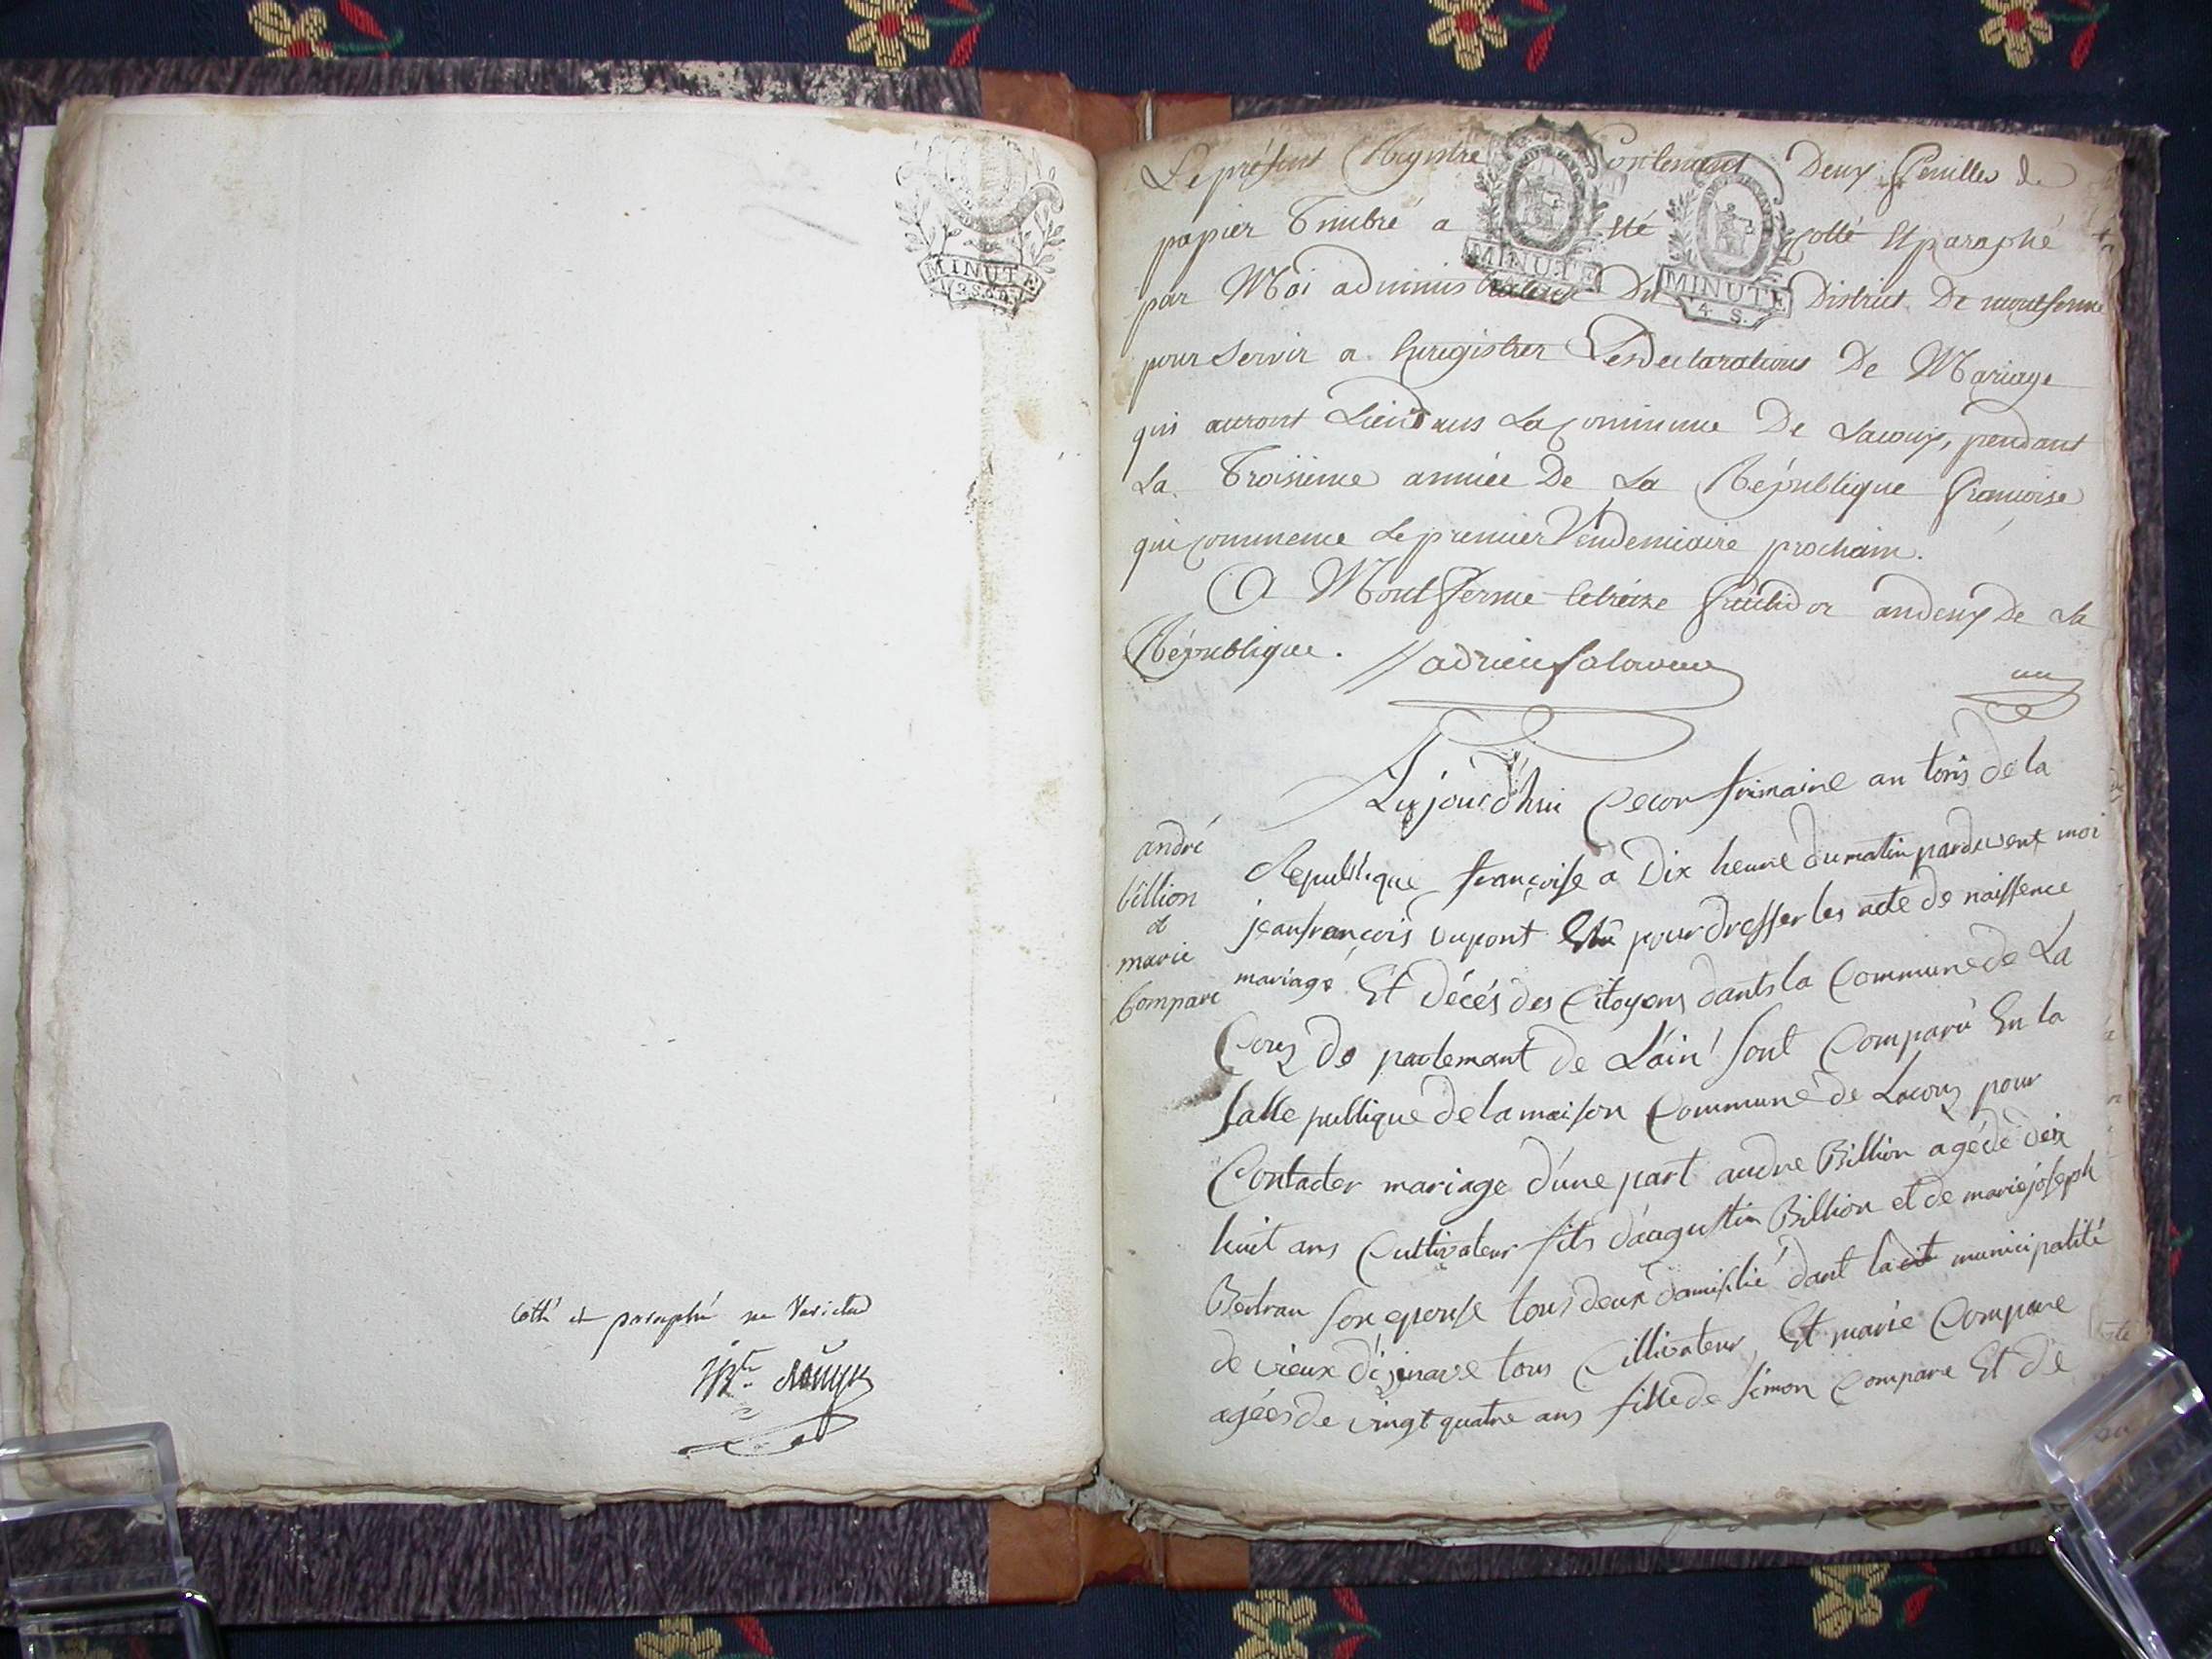 MINUTE
2 S. 6 D.
Cotté et paraphé ne Varietur
Le présent Registre Contenant Deux feuilles de
papier Timbré a Eté Cotté Et paraphé
par Moi administrateur Du District De montferme
pour Servir a Enregistrer Les declarations De Mariage
qui auront Lieu Dans La Commune De Lacoux, pendant
La Troisiéme année De La République francoise
qui commence Le premier Vendemiaire prochain.
A Montferme le treize fructidor an deux De La
République.
un
MINUTE
MINUTE
4 S.
Aujourd'hui frimaire an toris de la
Republique françoise a Dix heure du matin pardevent moi
jean françois Dupont Elu pour dresser les acte de naissence
mariage Et décés des Citoyens dants la Commune de La
Couz de partemant de L'ain sont Comparu En la
salle publique de la maison Commune de Lacouz pour
Contacter mariage d'une part andre Billion agé de dix
huit ans Cultivateur fils d'augustin Billion et de marie joseph
Bertran son epouse tous deux domislié dant la dit municipalité
de vieux d'izenave tous Cultivateur, Et marie Compare
agées de vingt quatre ans fille de simon Compare Et de
andré
billion
et
marie
Compare